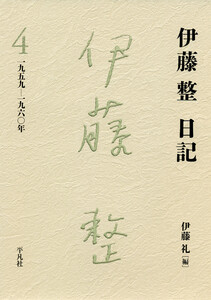 伊藤 整 日記
4
一九五九—一九六〇年
伊藤 整
伊藤 礼［編］
平凡社